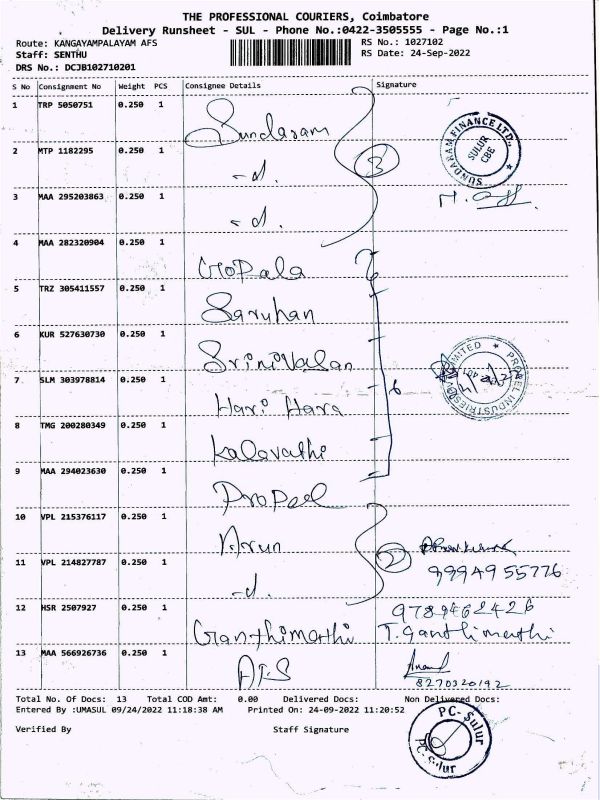 THE PROFESSIONAL COURIERS, Coimbatore
Delivery Runsheet - SUL - Phone No.:0422-3505555 - Page No.:1
Route: KANGAYAMPALAYAM AFS RS No.: 1027102
Staff: SENTHU RS Date: 24-Sep-2022
DRS No.: DCJB102710201
S No Consignment No Weight PCS Consignee Details Signature
1 TRP 5050751 0.250 1 Sundaram
SUNDARAM FINANCE LTD.,
SULUR
CBE
2 MTP 1182295 0.250 1 -d. 3
3 MAA 295203863 0.250 1 -d.
4 MAA 282320904 0.250 1 Gopala
5 TRZ 305411557 0.250 1 Saruhan
6 KUR 527630730 0.250 1 Srinivasan
PROPEL INDUSTRIES LIMITED
7 SLM 303978814 0.250 1 Hari Hara 6
8 TMG 200280349 0.250 1 Kalavathi
9 MAA 294023630 0.250 1 Propeel
10 VPL 215376117 0.250 1 Arun
11 VPL 214827787 0.250 1 -d. 2 99949 55776
12 HSR 2507927 0.250 1 Ganthimathi 9789462426
T. Ganthimathi
13 MAA 566926736 0.250 1 AFS Anand
8270320192
Total No. Of Docs: 13 Total COD Amt: 0.00 Delivered Docs: Non Delivered Docs:
Entered By :UMASUL 09/24/2022 11:18:38 AM Printed On: 24-09-2022 11:20:52
Verified By Staff Signature
PC- Sulur
PC- Sulur